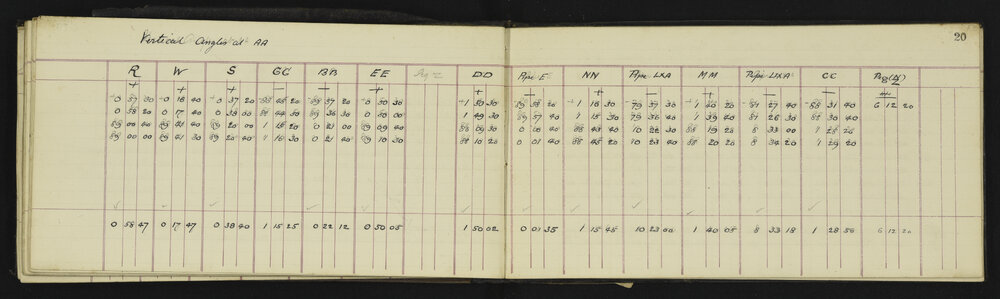 Vertical Angles at AA
20
R W S GG BB EE DD Pipe E NN Pipe LXA MM Pipe LIXA CC Peg (D)
+ + + - - + + - + - + - - +
+0 57 30 +0 18 40 +0 37 20 -88 45 20 -89 37 20 +0 50 30 +1 50 30 -89 58 20 +1 16 30 -79 37 30 +1 40 20 -81 27 40 -88 31 40 6 12 20
0 58 20 0 17 40 0 38 00 88 44 30 89 38 30 0 50 00 1 49 30 89 57 40 1 15 30 79 36 40 1 39 40 81 26 30 88 30 40
89 00 40 89 41 40 89 20 00 1 15 20 0 21 00 89 09 40 88 09 30 0 00 40 88 43 40 10 22 30 88 19 20 8 33 00 1 28 20
89 00 00 89 41 30 89 20 40 1 16 30 0 21 40 89 10 30 88 10 20 0 01 40 88 45 20 10 23 40 88 20 20 8 34 20 1 29 20
0 58 47 0 17 47 0 38 40 1 15 25 0 22 12 0 50 05 1 50 02 0 01 35 1 15 45 10 23 00 1 40 05 8 33 18 1 28 50 6 12 20